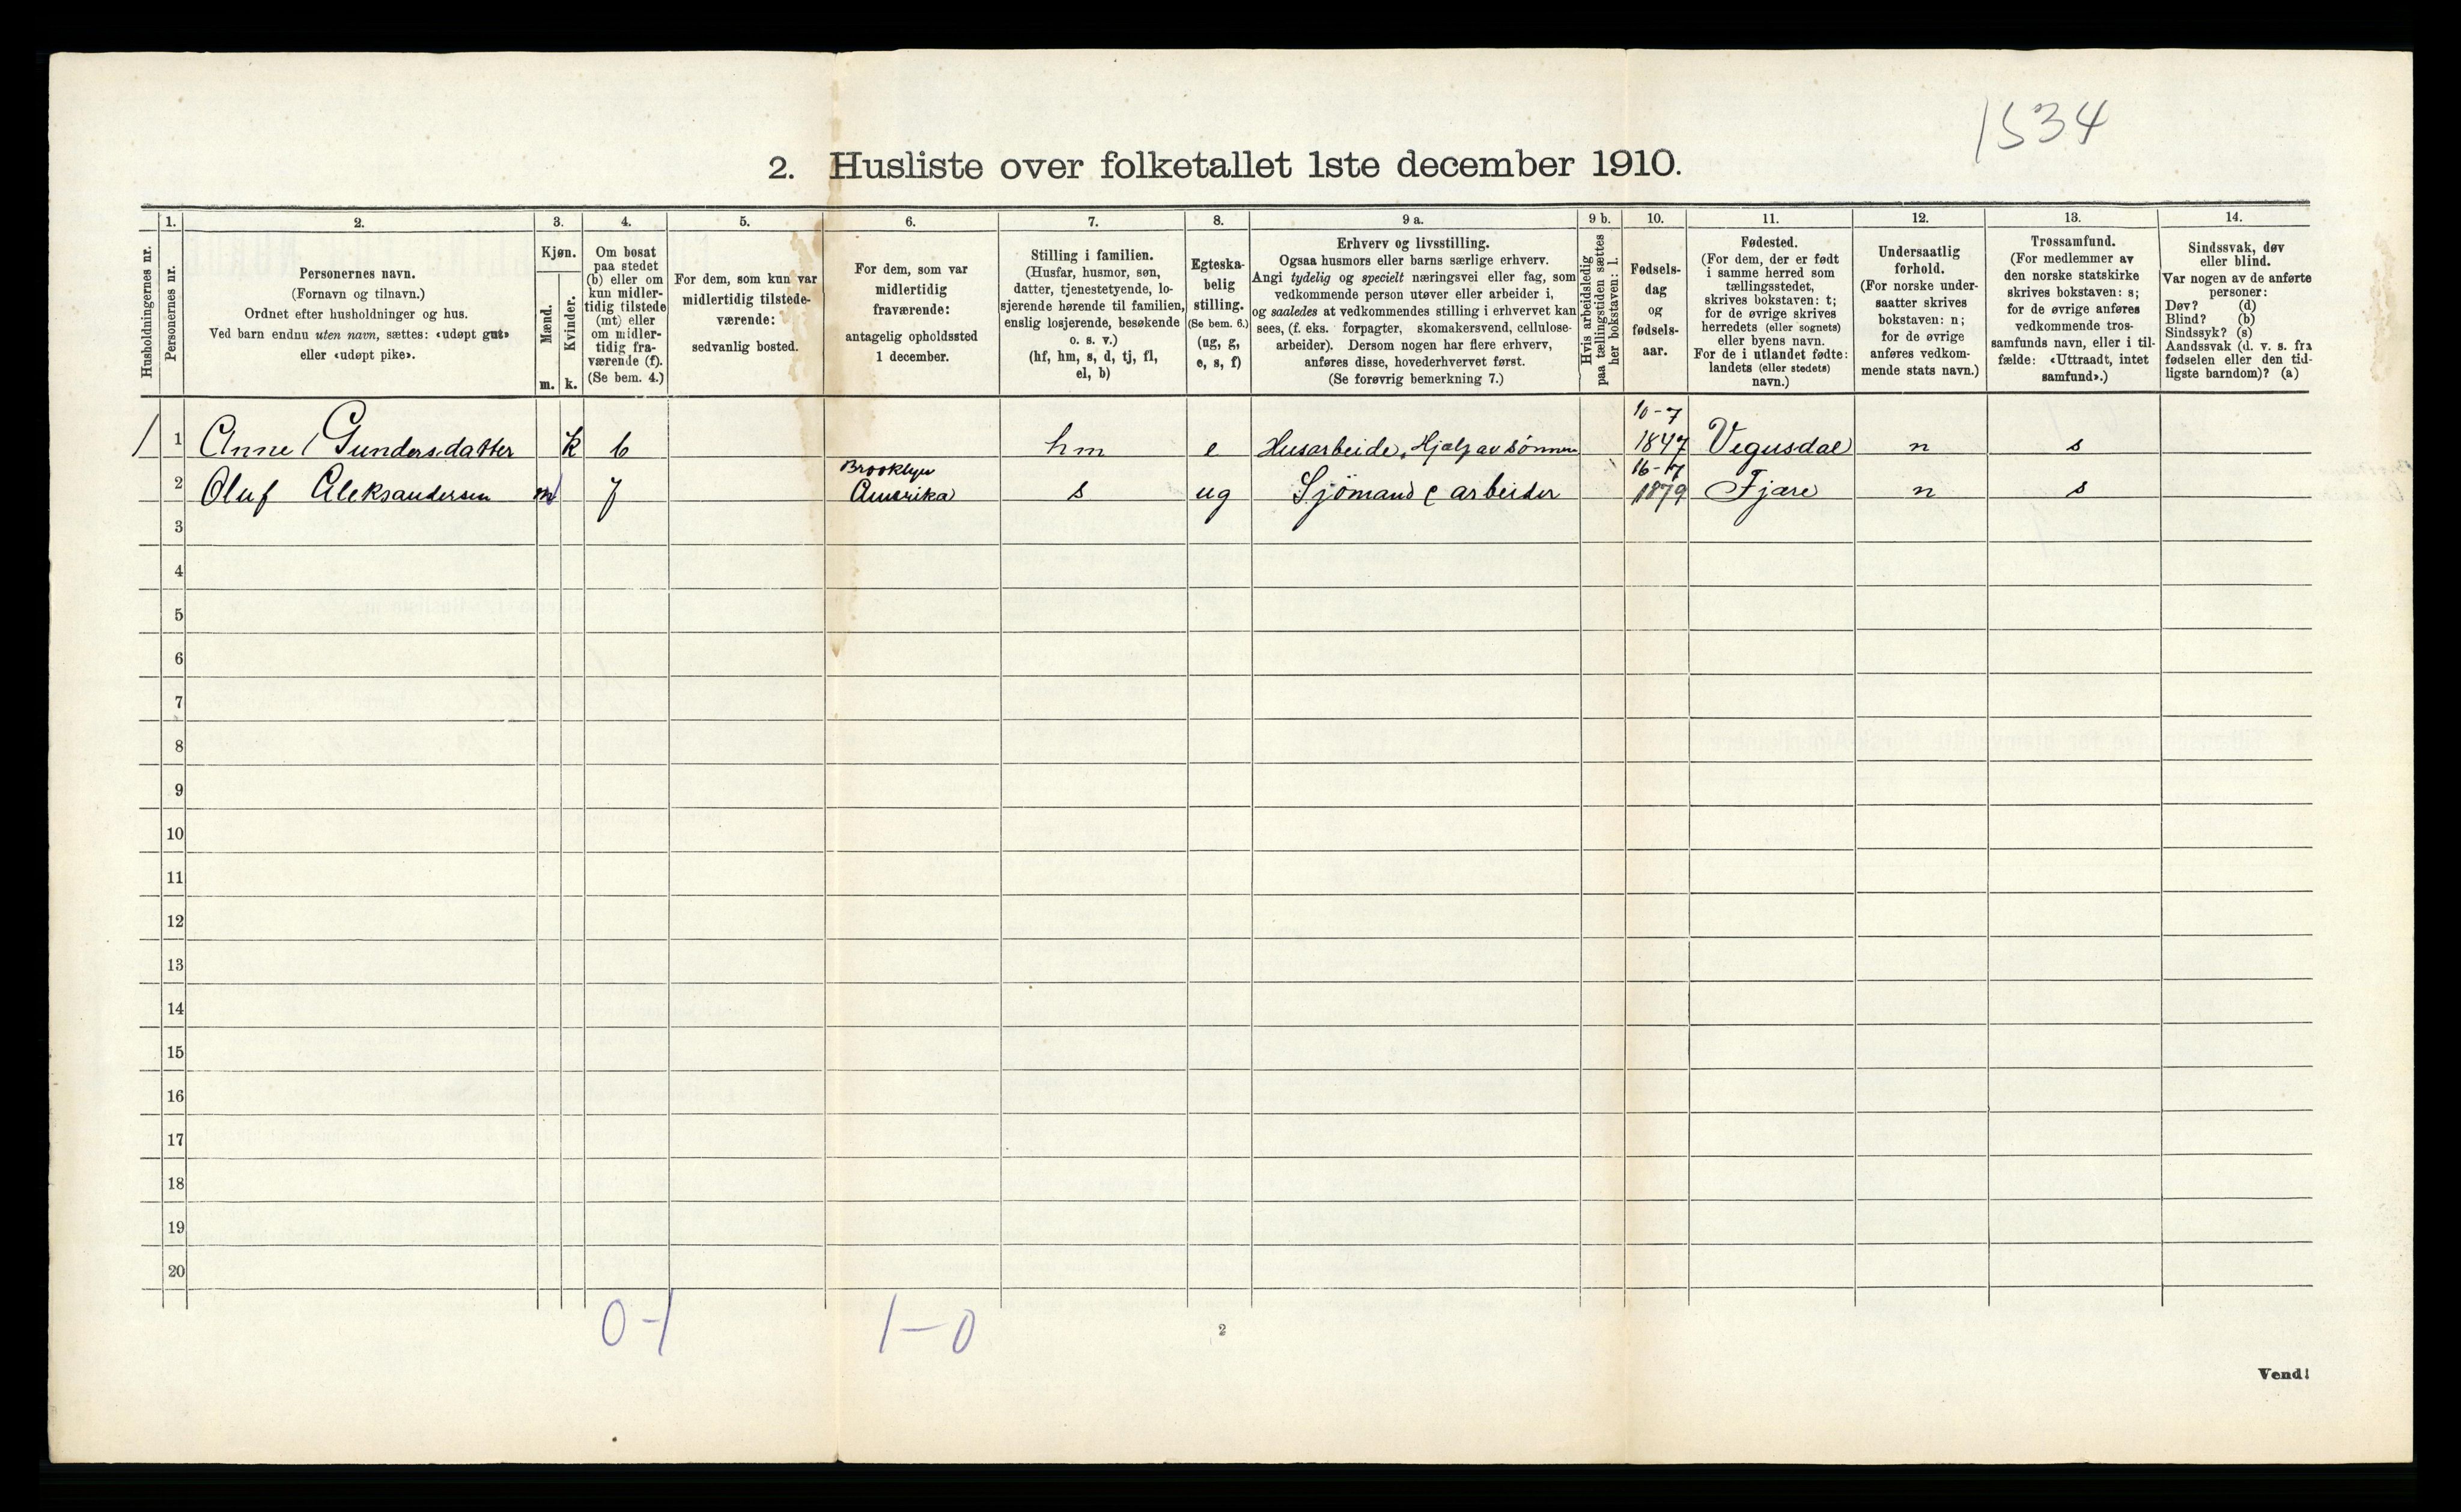 1534
2. Husliste over folketallet 1ste december 1910.
Husholdningernes nr.
1.
Personernes nr.
2.
Personernes navn.
(Fornavn og tilnavn.)
Ordnet efter husholdninger og hus.
Ved barn endnu uten navn, sættes: «udøpt gut»
eller «udøpt pike».
3.
Kjøn.
Mænd.
Kvinder.
m. k.
4.
Om bosat
paa stedet
(b) eller om
kun midler-
tidig tilstede
(mt) eller
om midler-
tidig fra-
værende (f).
(Se bem. 4.)
5.
For dem, som kun var
midlertidig tilstede-
værende:
sedvanlig bosted.
6.
For dem, som var
midlertidig
fraværende:
antagelig opholdssted
1 december.
7.
Stilling i familien.
(Husfar, husmor, søn,
datter, tjenestetyende, lo-
sjerende hørende til familien,
enslig losjerende, besøkende
o. s. v.)
(hf, hm, s, d, tj, fl,
el, b)
8.
Egteska-
belig
stilling.
(Se bem. 6.)
(ug, g,
e, s, f)
9 a.
Erhverv og livsstilling.
Ogsaa husmors eller barns særlige erhverv.
Angi tydelig og specielt næringsvei eller fag, som
vedkommende person utøver eller arbeider i,
og saaledes at vedkommendes stilling i erhvervet kan
sees, (f. eks. forpagter, skomakersvend, cellulose-
arbeider). Dersom nogen har flere erhverv,
anføres disse, hovederhvervet først.
(Se forøvrig bemerkning 7.)
9 b.
Hvis arbeidsledig
paa tællingstiden sættes
her bokstaven: l.
10.
Fødsels-
dag
og
fødsels-
aar.
11.
Fødested.
(For dem, der er født
i samme herred som
tællingsstedet,
skrives bokstaven: t;
for de øvrige skrives
herredets (eller sognets)
eller byens navn.
For de i utlandet fødte:
landets (eller stedets)
navn.)
12.
Undersaatlig
forhold.
(For norske under-
saatter skrives
bokstaven: n;
for de øvrige
anføres vedkom-
mende stats navn.)
13.
Trossamfund.
(For medlemmer av
den norske statskirke
skrives bokstaven: s;
for de øvrige anføres
vedkommende tros-
samfunds navn, eller i til-
fælde: «Uttraadt, intet
samfund».)
14.
Sindssvak, døv
eller blind.
Var nogen av de anførte
personer:
Døv? (d)
Blind? (b)
Sindssyk? (s)
Aandssvak (d. v. s. fra
fødselen eller den tid-
ligste barndom)? (a)
10-7
1 1 Anne Gundersdatter k b hm e Husarbeide. Hjælp av sønnen 1847 Vegusdal n s
Brooklyn 16-7
2 Oluf Aleksandersen m f Amerika s ug Sjömand & arbeider 1879 Fjære n s
3
4
5
6
7
8
9
10
11
12
13
14
15
16
17
18
19
20
0-1 1-0
2
Vend!